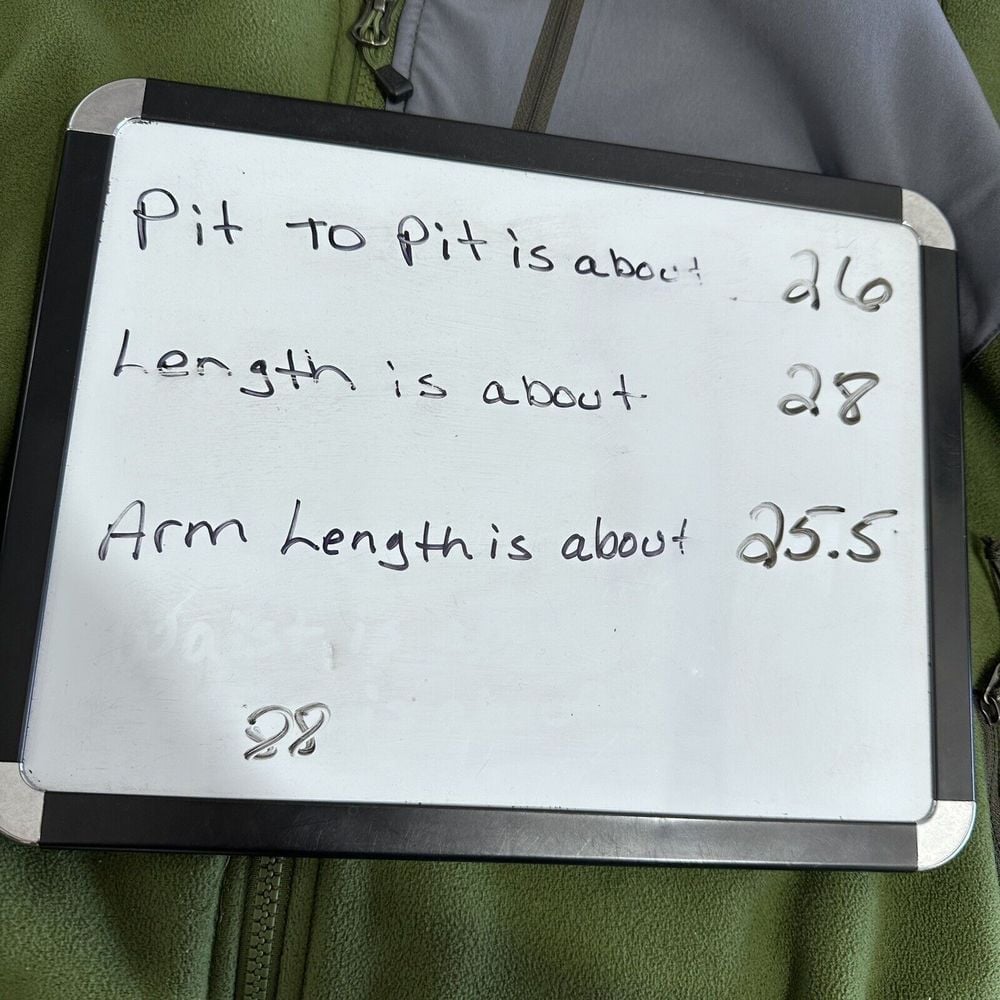 Pit To Pit is about 26
Length is about 28
Arm Length is about 25.5
28